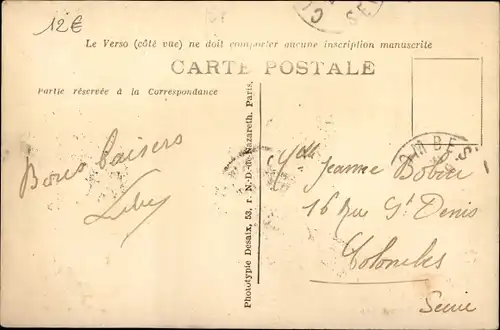 12€
Le Verso (côté vue) ne doit comporter aucune inscription manuscrite
CARTE POSTALE
Partie réservée à la Correspondance
Bons baisers
Phototypie Desaix, 53, r. N.-D.-de-Nazareth, Paris.
Mlle Jeanne
16 Rue St Denis
Colombes
Seine